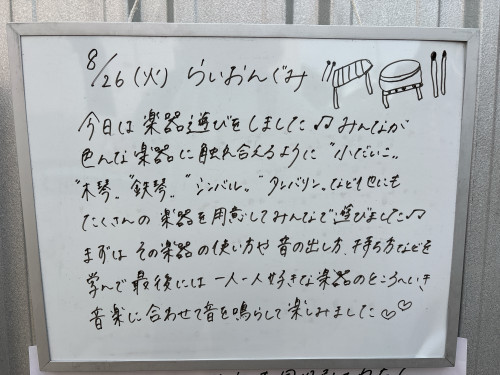 8/26(火) らいおんぐみ
今日は楽器遊びをしました♫ みんなが
色んな楽器に触れ合えるように "小だいこ"
"木琴" "鉄琴" "シンバル" "タンバリン"など他にも
たくさんの楽器を用意してみんなで遊びました♫
まずは その楽器の使い方や 音の出し方、持ち方などを
学んで 最後には 一人一人好きな楽器のところへいき
音楽に合わせて音を鳴らして楽しみました♡♡